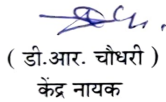 ( डी.आर. चौधरी )
केंद्र नायक